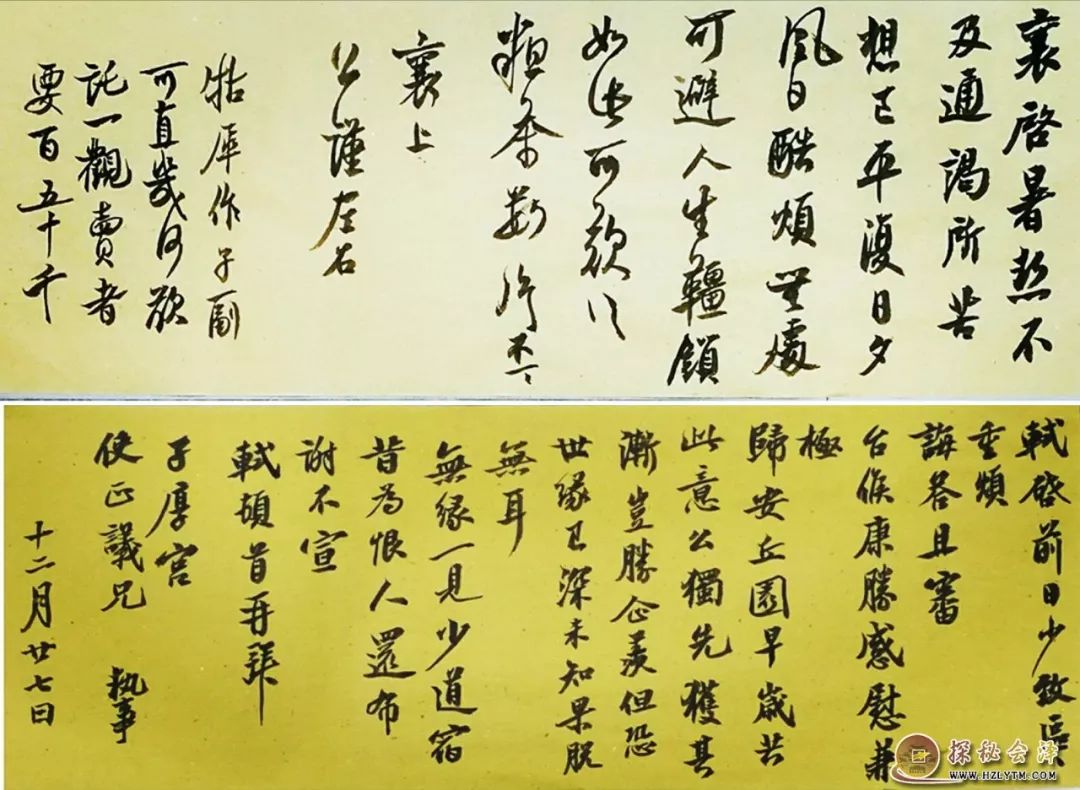 襄啓暑熱不
及通謁所苦
想已平復日夕
風日酷煩無處
可避人生韁鎖
如此可歎可歎
精茶數片不一一
襄上
公謹左右
牯犀作子一副
可直幾何欲
託一觀賣者
要百五十千
軾啓前日少致區區
重煩
誨答且審
台候康勝感慰兼
極
歸安丘園早歲共
此意公獨先獲其
漸豈勝企羨但恐
世緣已深未知果脫
無耳
無緣一見少道宿
昔為恨人還布
謝不宣
軾頓首再拜
子厚宮
使正議兄 執事
十二月廿七日
探秘会泽
WWW.HZLYTM.COM